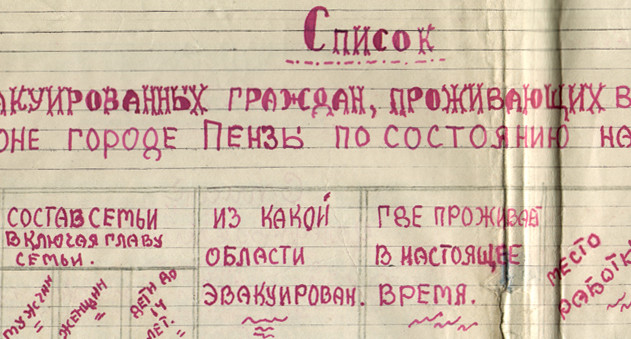 Список
акуированных граждан, проживающих в
оне городе Пензы по состоянию на
СОСТАВ СЕМЬИ
ВКЛЮЧАЯ ГЛАВУ
СЕМЬИ.
МУЖЧИН
ЖЕНЩИН
ДЕТИ ДО
14
ЛЕТ.
ИЗ КАКОЙ
ОБЛАСТИ
ЭВАКУИРОВАН.
ГДЕ ПРОЖИВАЕТ
В НАСТОЯЩЕЕ
ВРЕМЯ.
МЕСТО
РАБОТЫ